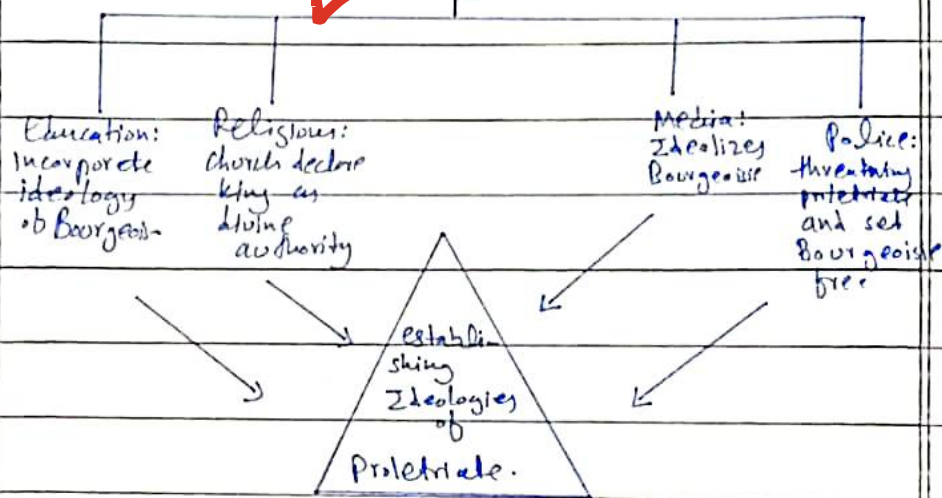 Education:
Incorporete
ideology
of Bourgeois-
Religious:
Church declare
king as
divine
authority
Media:
Idealizes
Bourgeoisie
Police:
threatning
proletriate
and set
Bourgeoisie
free
establi-
shing
Ideologies
of
Proletriate.